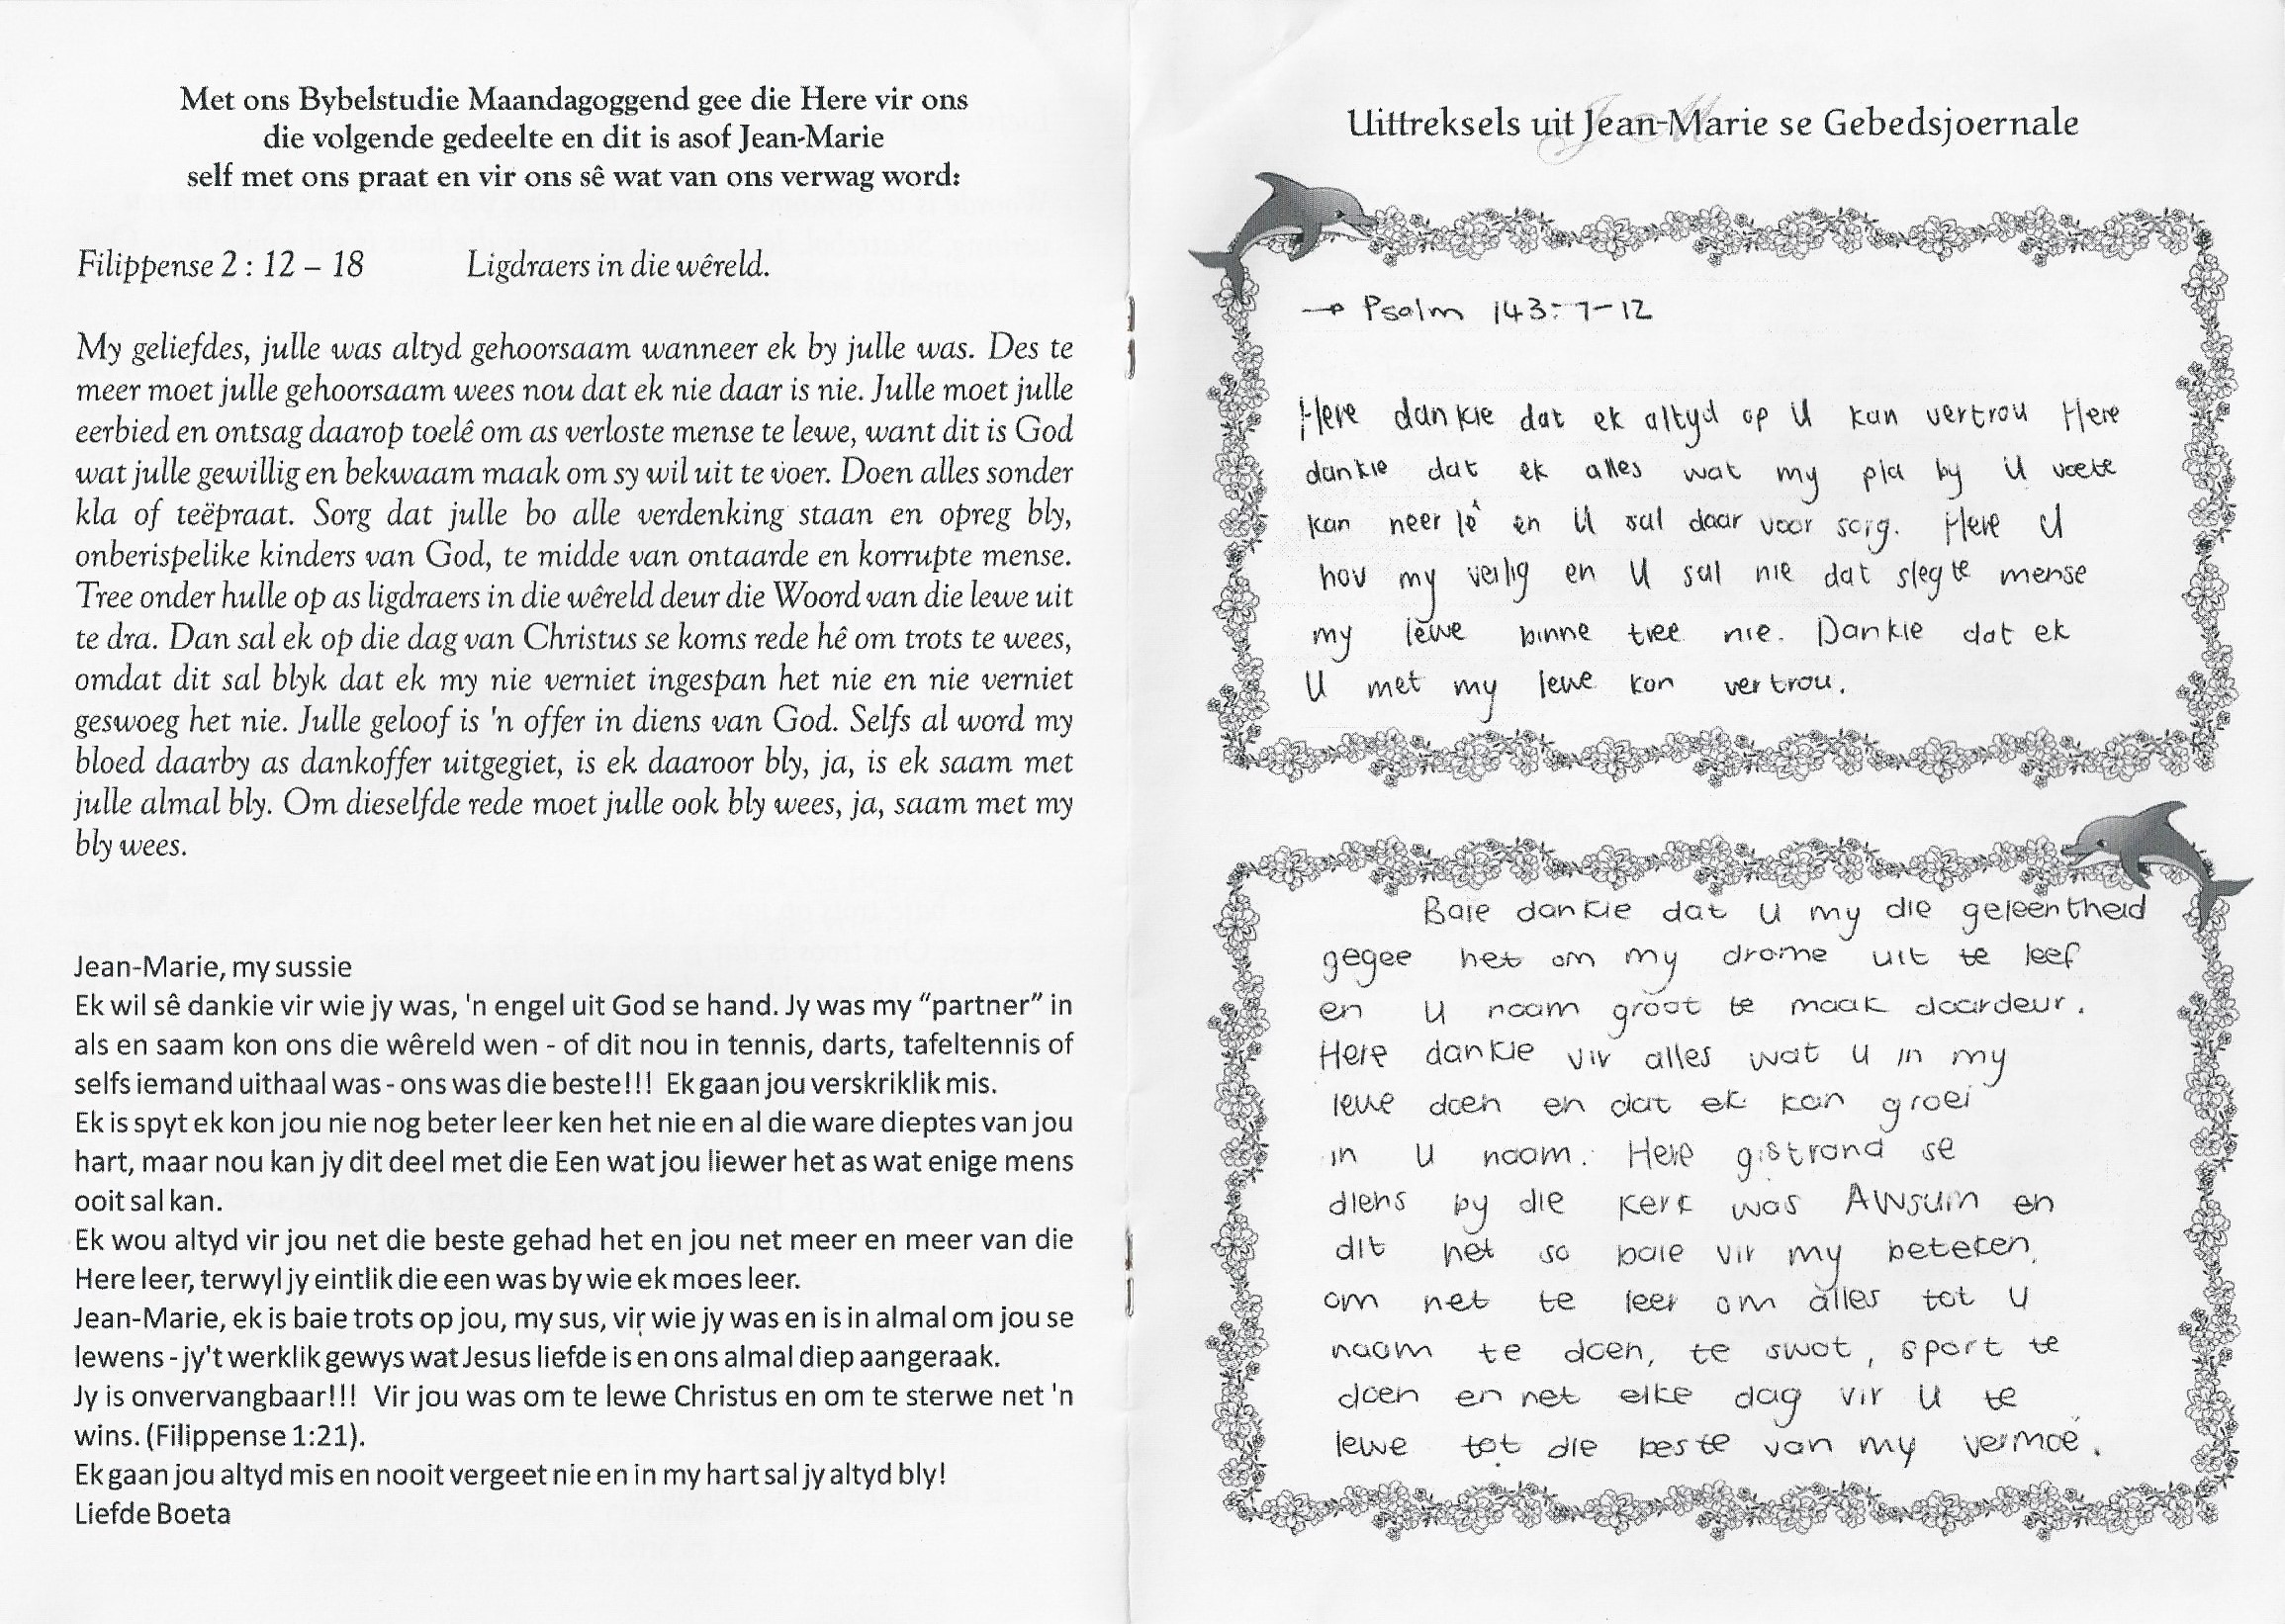 Met ons Bybelstudie Maandagoggend gee die Here vir ons
die volgende gedeelte en dit is asof Jean-Marie
self met ons praat en vir ons sê wat van ons verwag word:
Filippense 2 : 12 – 18 Ligdraers in die wêreld.
My geliefdes, julle was altyd gehoorsaam wanneer ek by julle was. Des te
meer moet julle gehoorsaam wees nou dat ek nie daar is nie. Julle moet julle
eerbied en ontsag daarop toelê om as verloste mense te lewe, want dit is God
wat julle gewillig en bekwaam maak om sy wil uit te voer. Doen alles sonder
kla of teëpraat. Sorg dat julle bo alle verdenking staan en opreg bly,
onberispelike kinders van God, te midde van ontaarde en korrupte mense.
Tree onder hulle op as ligdraers in die wêreld deur die Woord van die lewe uit
te dra. Dan sal ek op die dag van Christus se koms rede hê om trots te wees,
omdat dit sal blyk dat ek my nie verniet ingespan het nie en nie verniet
geswoeg het nie. Julle geloof is 'n offer in diens van God. Selfs al word my
bloed daarby as dankoffer uitgegiet, is ek daaroor bly, ja, is ek saam met
julle almal bly. Om dieselfde rede moet julle ook bly wees, ja, saam met my
bly wees.
Jean-Marie, my sussie
Ek wil sê dankie vir wie jy was, 'n engel uit God se hand. Jy was my “partner” in
als en saam kon ons die wêreld wen - of dit nou in tennis, darts, tafeltennis of
selfs iemand uithaal was - ons was die beste!!! Ek gaan jou verskriklik mis.
Ek is spyt ek kon jou nie nog beter leer ken het nie en al die ware dieptes van jou
hart, maar nou kan jy dit deel met die Een wat jou liewer het as wat enige mens
ooit sal kan.
Ek wou altyd vir jou net die beste gehad het en jou net meer en meer van die
Here leer, terwyl jy eintlik die een was by wie ek moes leer.
Jean-Marie, ek is baie trots op jou, my sus, vir wie jy was en is in almal om jou se
lewens - jy't werklik gewys wat Jesus liefde is en ons almal diep aangeraak.
Jy is onvervangbaar!!! Vir jou was om te lewe Christus en om te sterwe net 'n
wins. (Filippense 1:21).
Ek gaan jou altyd mis en nooit vergeet nie en in my hart sal jy altyd bly!
Liefde Boeta
Uittreksels uit Jean-Marie se Gebedsjoernale
JM
→ Psalm 143: 7-12
Here dankie dat ek altyd op U kan vertrou Here
dankie dat ek alles wat my pla by U voete
kan neer lê en U sal daar voor sorg. Here U
hou my veilig en U sal nie dat slegte mense
my lewe binne tree nie. Dankie dat ek
U met my lewe kan vertrou.
Baie dankie dat U my die geleentheid
gegee het om my drome uit te leef
en U naam groot te maak daardeur.
Here dankie vir alles wat U in my
lewe doen en dat ek kan groei
in U naam. Here gistrand se
diens by die kerk was Awsum en
dit het so baie vir my beteken,
om net te leer om alles tot U
naam te doen, te swot, sport te
doen en net elke dag vir U te
lewe tot die beste van my vermoë.